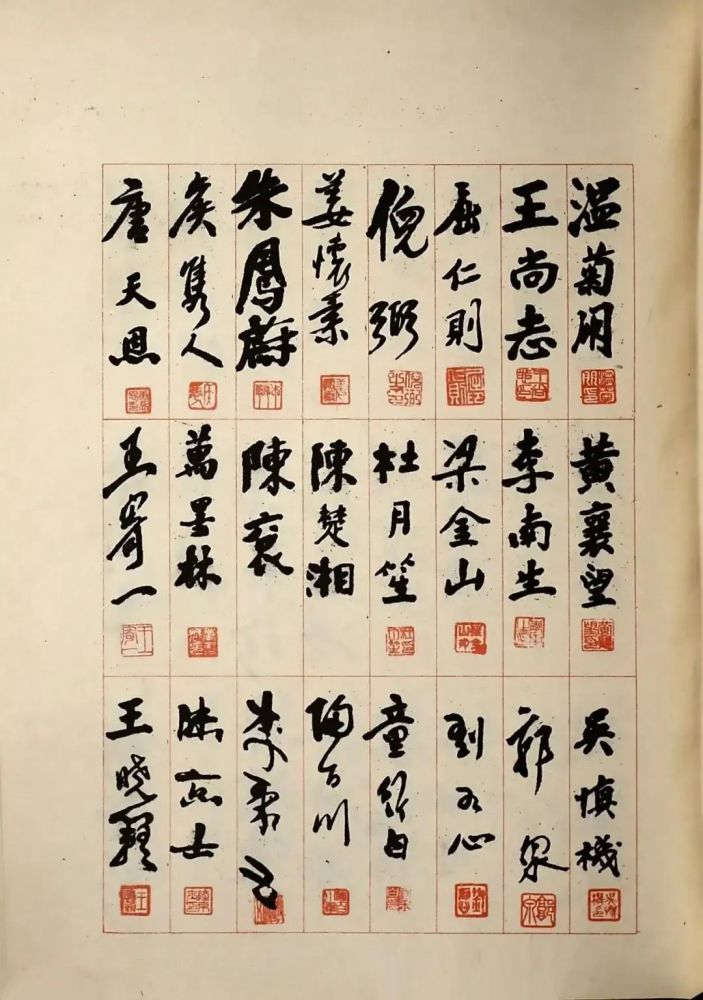 溫菊朋
王尚志
屈仁則
倪弼
姜懷素
朱鳳蔚
侯雋人
唐天恩
黃襄望
李南生
梁金山
杜月笙
陳楚湘
陳袞
萬墨林
王脊一
吳慎機
郭泉
劉不心
童行白
陶百川
朱學範
陸京士
王曉籟